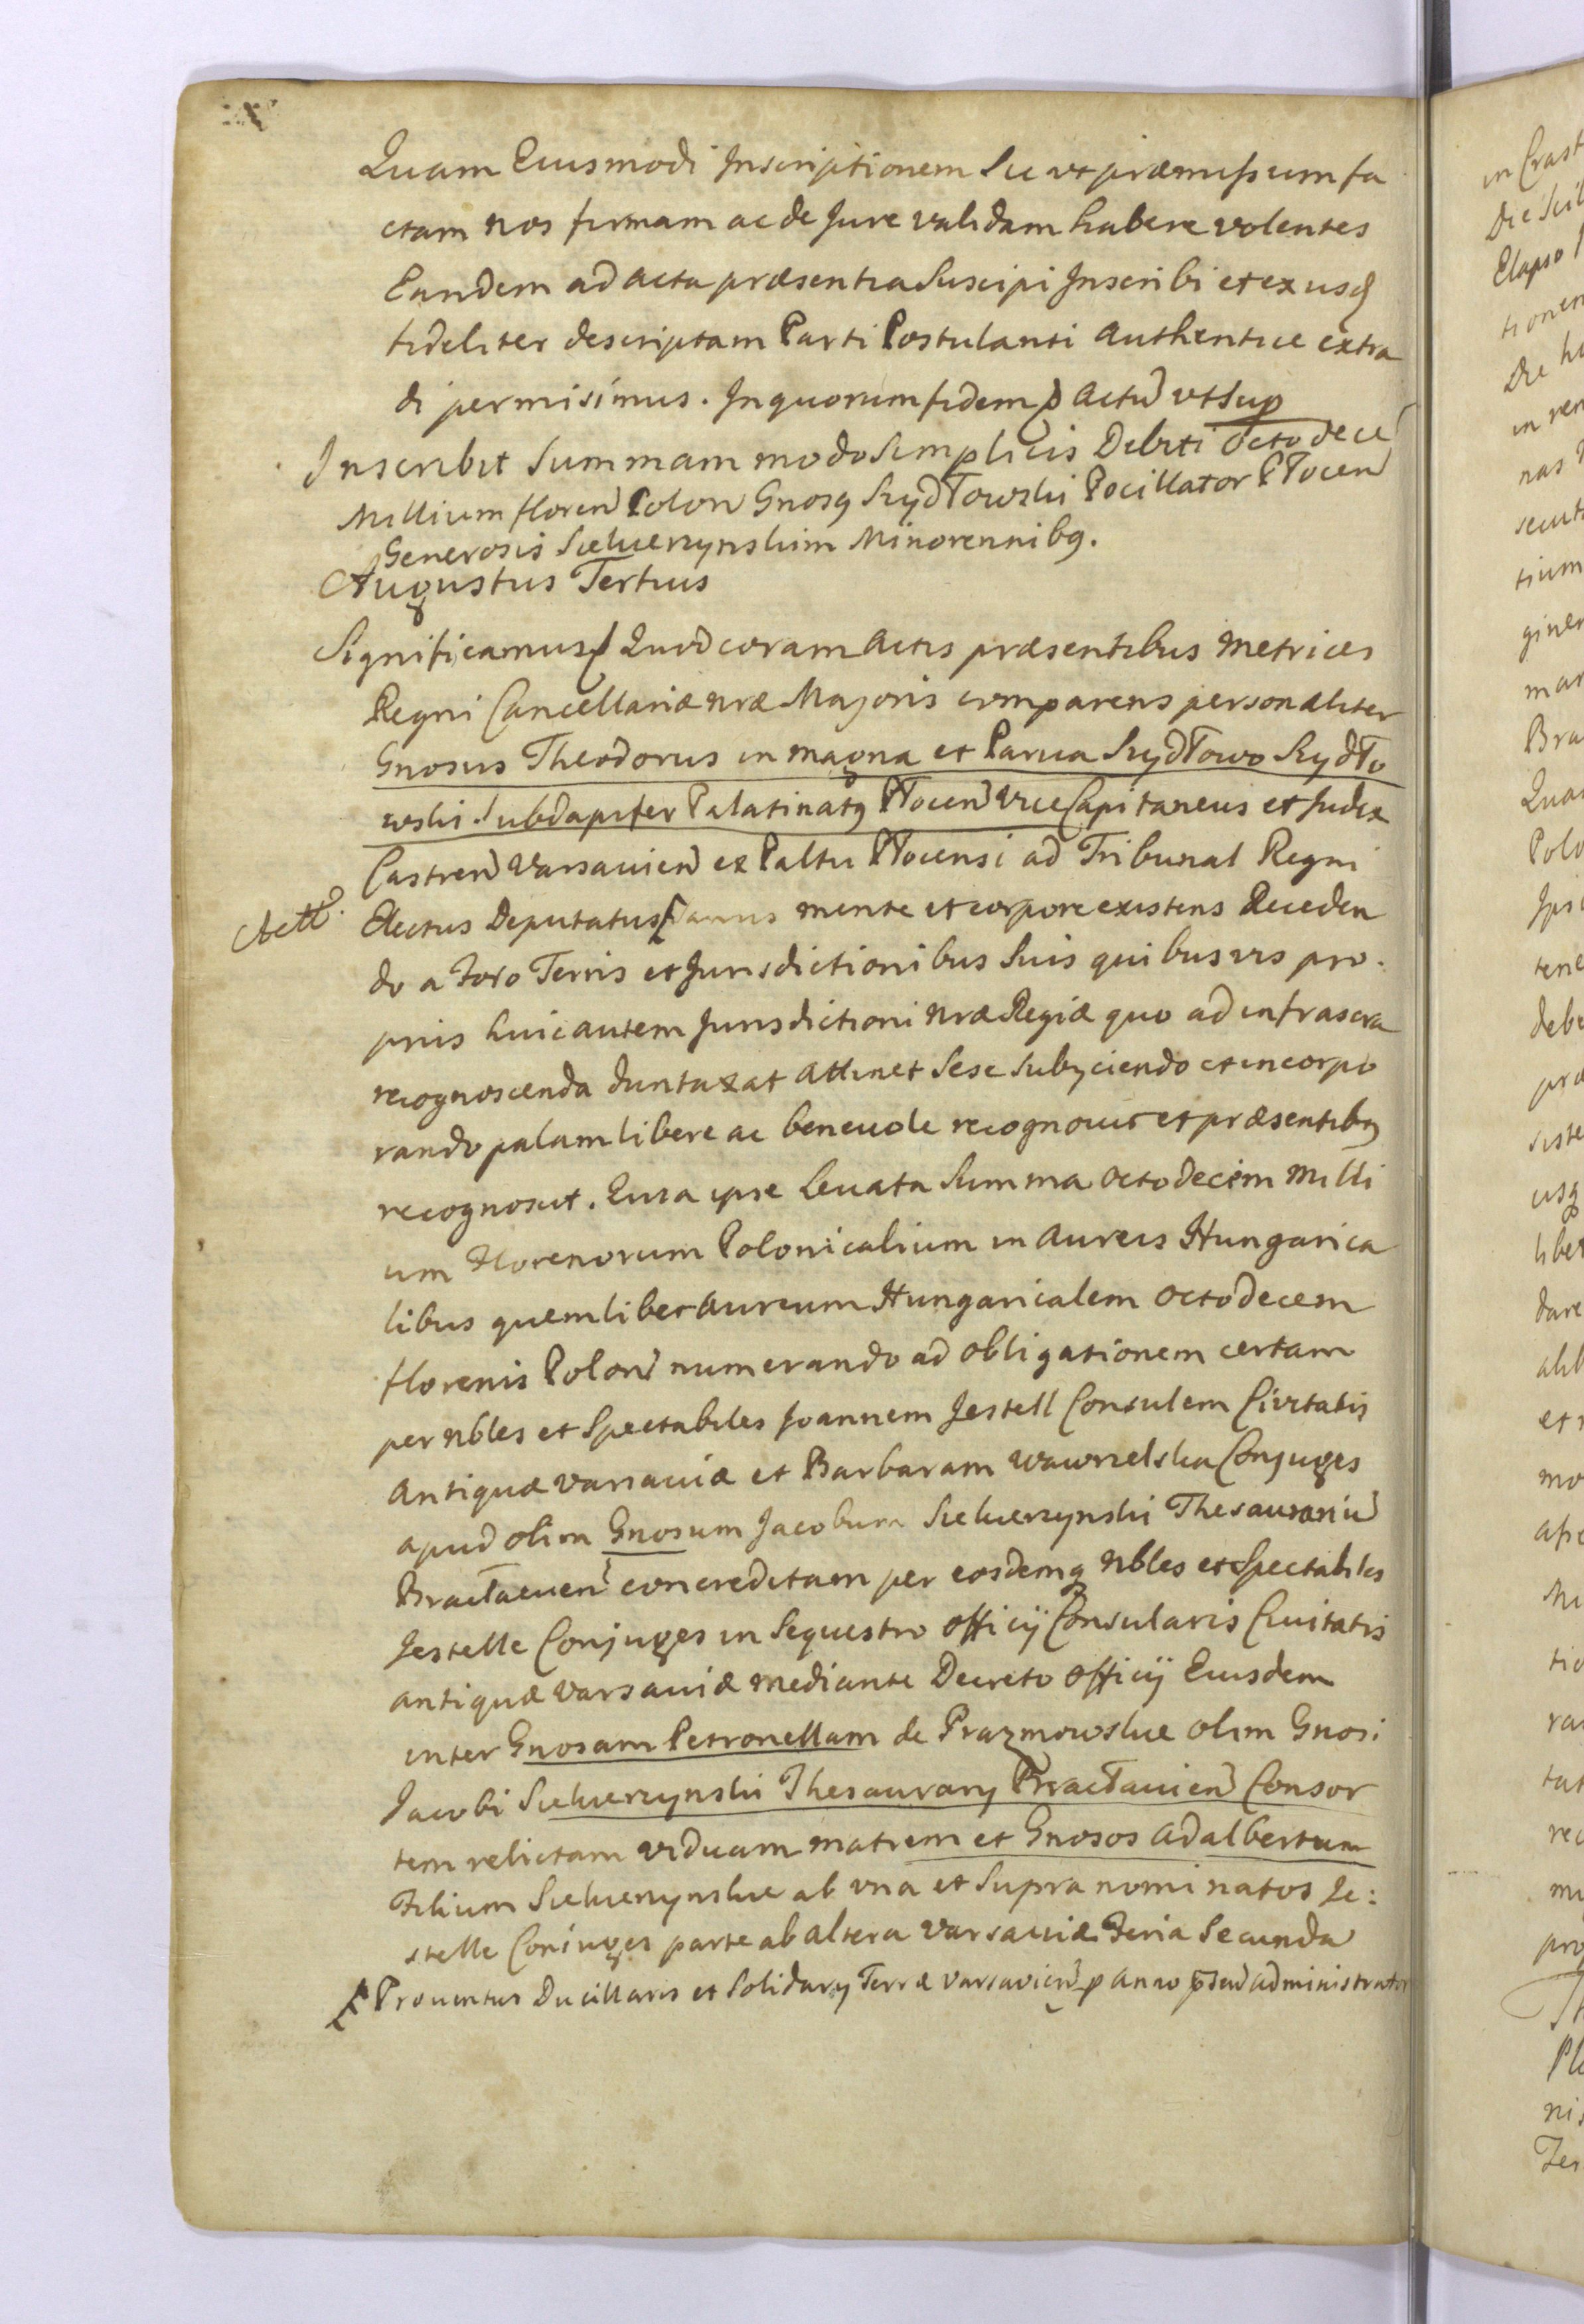 Quam Eiusmodi Inscriptionem Sic ut præmissum fa
ctam nos firmam ac de Jure validam habere volentes
Eandem ad acta præsentia Suscipi Inscribi et ex usq
fideliter descriptam Parti Postulanti Authentice extra
di permisimus. In quorum fidem p Actu ut Sup
Inscribit Summam modo Simplicis Debiti Octodece
Millium floren Polon Gnosq Szydłowski Pocillator Płocen
Generosis Siekierzynskim Minorennibq.
Augustus Tertius
Significamus Quod coram Actis præsentibus Metrices
Regni Cancellariæ nræ Majoris comparens personaliter
Gnosus Theodorus in magna et Parva Szydłowo Szydło
wski Subdapifer Palatinatq Płocen Vice Capitaneus et Judex
Castren Varsavien ex Paltu Płocensi ad Tribunal Regni
Electus Deputatus Sanus mente et corpore existens Receden
do a Foro Terris et Jurisdictionibus Suis quibusvis pro.
priis huic autem Jurisdictioni nræ Regiæ quo ad infrascra
recognoscenda duntaxat Attinet Sese Subyciendo et incorpo
rando palam libere ac benevole recognovit et præsentibq
recognoscit. Quia ipse Levata Summa Octodecim Milli
um Florenorum Polonicalium in Aureis Hungarica
libus quemlibet Aureum Hungaricalem Octodecem
florenis Polon numerando ad Obligationem certam
per Nbles et Spectabiles Joannem Jestell Consulem Civitatis
Antiquæ Varsaviæ et Barbaram Conjuges
apud olim Gnosum Jacobum Siekierzynski Thesaurariu
Bracłavien concreditam per eosdemq Nbles et Spectabiles
Jestelle Conjuges in Sequestro Officij Consularis Civitatis
Antiquæ Varsaviæ mediante Decreto Officij Eiusdem
inter Gnosam Petronellam de Prazmowskie olim Gnosi
Jacobi Siekierzynski Thesaurary Bracłavien Consor
tem relictam viduam matrem et Gnosos Adalbertum
Filium Siekierzynskie ab una et Supra nominatos Je:
stelle Coniuges parte ab altera Varsaviæ Feria Secunda
Proventus Ducillaris et Solidary Terræ Varsavien p Anno administrator